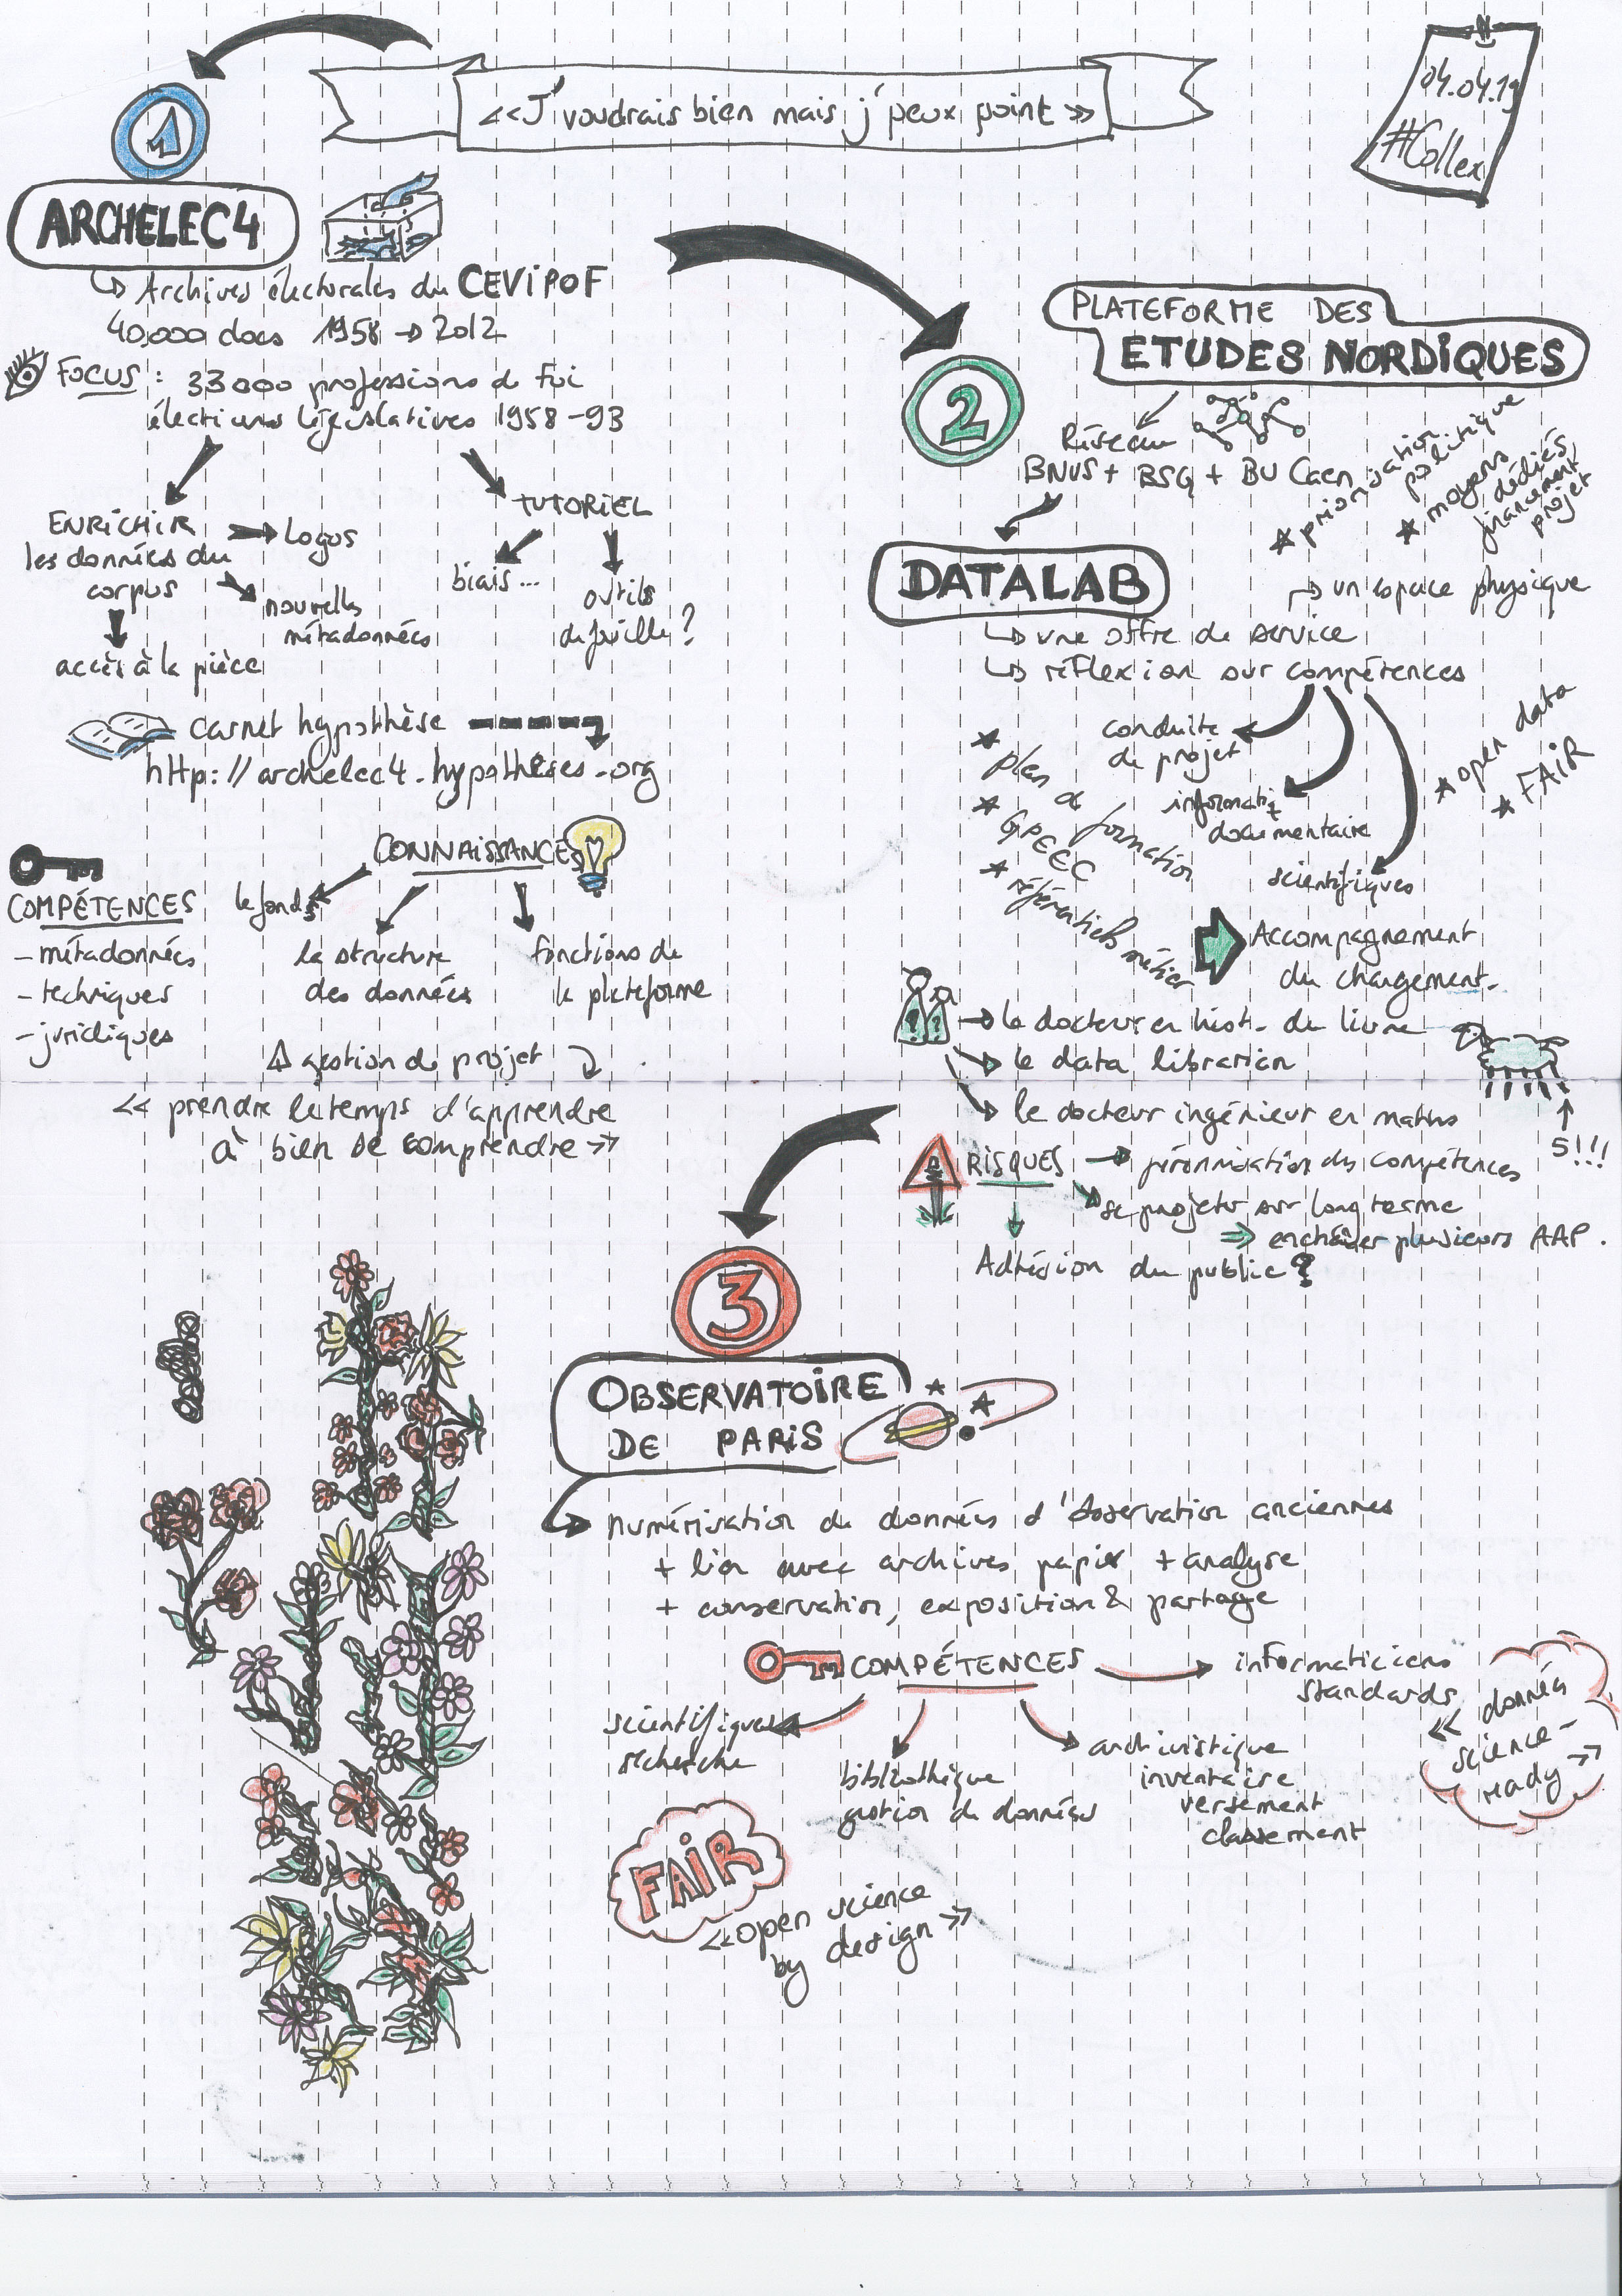 « J'voudrais bien mais j'peux point »
04.04.19
#Collex
1
ARCHELEC4
↳ Archives électorales du CEVIPOF
40.000 docs 1958 → 2012
FOCUS : 33000 professions de foi
élections législatives 1958-93
ENRICHIR
les données du
corpus
→ logos
→ nouvelles
métadonnées
accès à la pièce
TUTORIEL
biais...
outils
de fouille ?
carnet hypothèse
http://archelec4.hypothèses.org
COMPÉTENCES
- métadonnées
- techniques
- juridiques
CONNAISSANCES
le fonds
la structure
des données
fonctions de
la plateforme
gestion de projet
« prendre le temps d'apprendre
à bien se comprendre »
2
PLATEFORME DES
ETUDES NORDIQUES
Réseau
BNUS + BSG + BU Caen
* priorisation
politique
* moyens
dédiés
financement
projet
DATALAB
↳ un espace physique
↳ une offre de service
↳ réflexion sur compétences
conduite
de projet
informatiq
documentaire
scientifiques
* open data
* FAIR
* plan de formation
* GPEEC
* référentiels métier
Accompagnement
du changement.
→ le docteur en hist. du livre
→ le data librarian
→ le docteur ingénieur en maths
5!!!
RISQUES → pérennisation des compétences
se projeter sur long terme
⇒ enchaîner plusieurs AAP.
Adhésion du public ?
3
OBSERVATOIRE
DE PARIS
numérisation de données d'observation anciennes
+ lien avec archives papier + analyse
+ conservation, exposition & partage
COMPÉTENCES
informaticiens
standards
scientifiques
recherche
bibliothèque
gestion de données
archivistique
inventaire
versement
classement
« données
science-
ready »
FAIR
« open science
by design »